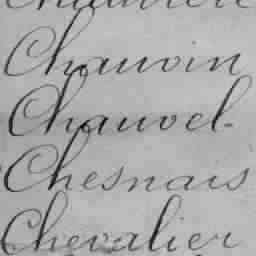 Chauvin
Chauvel-
Chesnais
Chevalier